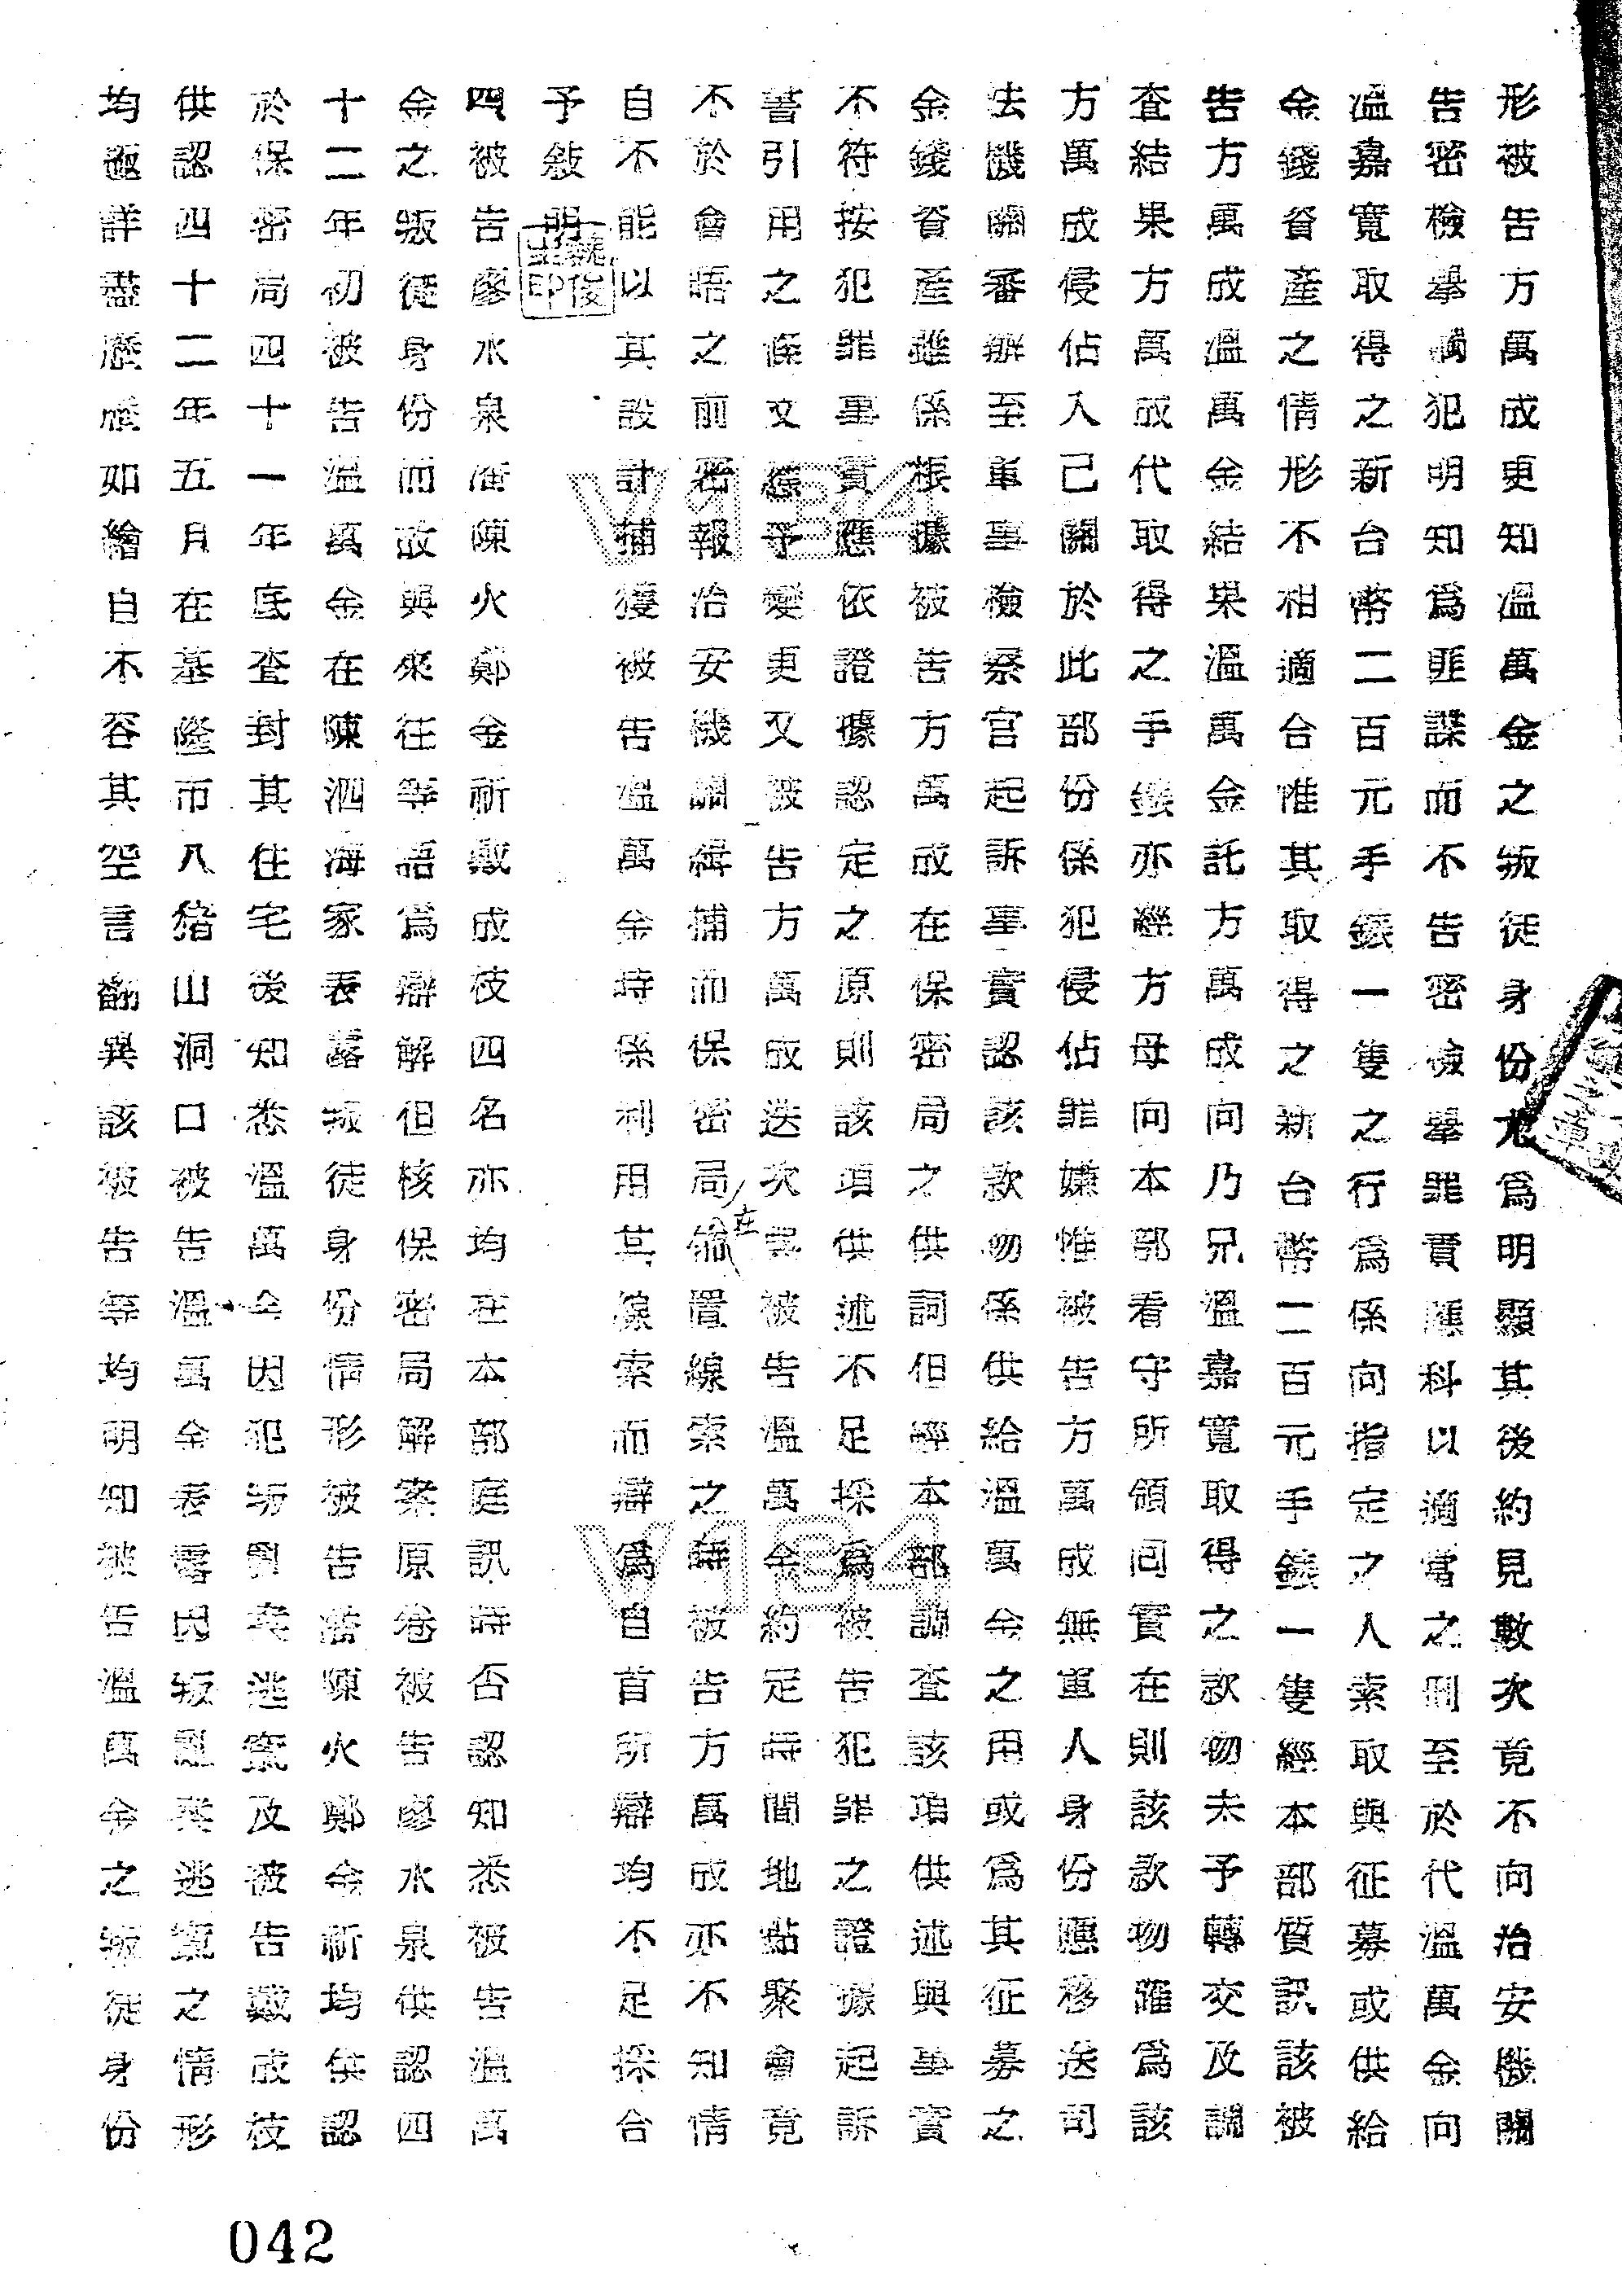 形被告方萬成更知溫萬金之叛徒身份尤為明顯其後約見數次竟不向治安機關
告密檢舉觸犯明知為匪諜而不告密檢舉罪責應科以適當之刑至於代溫萬金向
溫嘉寬取得之新台幣二百元手錶一隻之行為係向指定之人索取與征募或供給
金錢資產之情形不相適合惟其取得之新台幣二百元手錶一隻經本部質訊該被
告方萬成溫萬金結果溫萬金託方萬成向乃兄溫嘉寬取得之款物未予轉交及調
查結果方萬成代取得之手錶亦經方母向本部看守所領回實在則該款物雖為該
方萬成侵佔入己關於此部份係犯侵佔罪嫌惟被告方萬成無軍人身份應移送司
法機關審辦至軍事檢察官起訴事實認該款物係供給溫萬金之用或為其征募之
金錢資產雖係根據被告方萬成在保密局之供詞但經本部調查該項供述與事實
不符按犯罪事實應依證據認定之原則該項供述不足採為被告犯罪之證據起訴
書引用之條文應予變更又被告方萬成迭次與被告溫萬金約定時間地點聚會竟
不於會晤之前密報治安機關緝捕而保密局在佈置線索之時被告方萬成亦不知情
自不能以其設計捕獲被告溫萬金時係利用其線索而辯為自首所辯均不足採合
予敘明
四被告廖水泉潘陳火鄭金祈戴成枝四名亦均在本部庭訊時否認知悉被告溫萬
金之叛徒身份而故與來往等語為辯解但核保密局解案原卷被告廖水泉供認四
十二年初被告溫萬金在陳泗海家表露叛徒身份情形被告潘陳火鄭金祈均供認
於保密局四十一年底查封其住宅後知悉溫萬金因犯叛亂案逃竄及被告戴成枝
供認四十二年五月在基隆市八猪山洞口被告溫萬金表露因叛亂案逃竄之情形
均極詳盡歷歷如繪自不容其空言翻異該被告等均明知被告溫萬金之叛徒身份
042